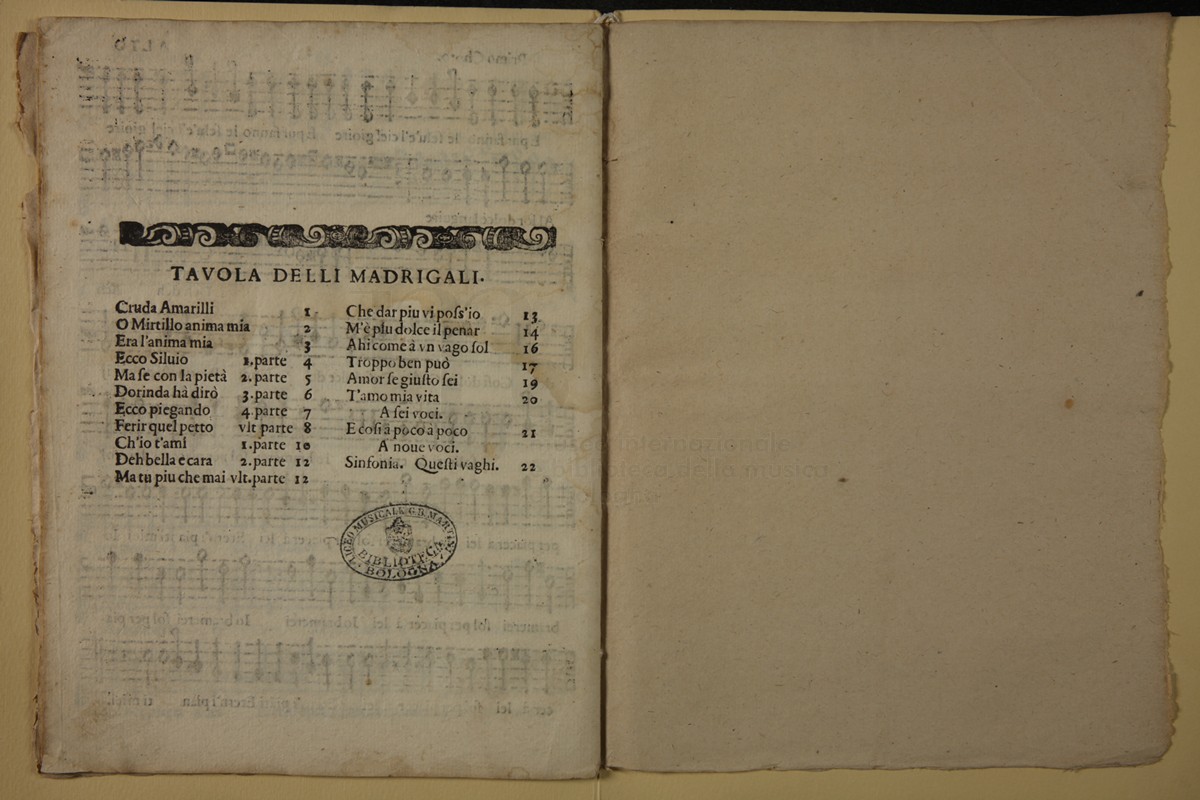 TAVOLA DELLI MADRIGALI.
Cruda Amarilli 1
O Mirtillo anima mia 2
Era l'anima mia 3
Ecco Siluio 1.parte 4
Ma se con la pietà 2.parte 5
Dorinda hà dirò 3.parte 6
Ecco piegando 4.parte 7
Ferir quel petto vlt parte 8
Ch'io t'ami 1.parte 10
Deh bella e cara 2.parte 12
Ma tu piu che mai vlt.parte 12
Che dar piu vi poss'io 13
M'è piu dolce il penar 14
Ahi come à vn vago sol 16
Troppo ben può 17
Amor se giusto sei 19
T'amo mia vita 20
A sei voci.
E cosi à poco à poco 21
A noue voci.
Sinfonia. Questi vaghi. 22
LICEO MUSICALE G.B. MARTINI
BIBLIOTECA
BOLOGNA
internazionale
della musica